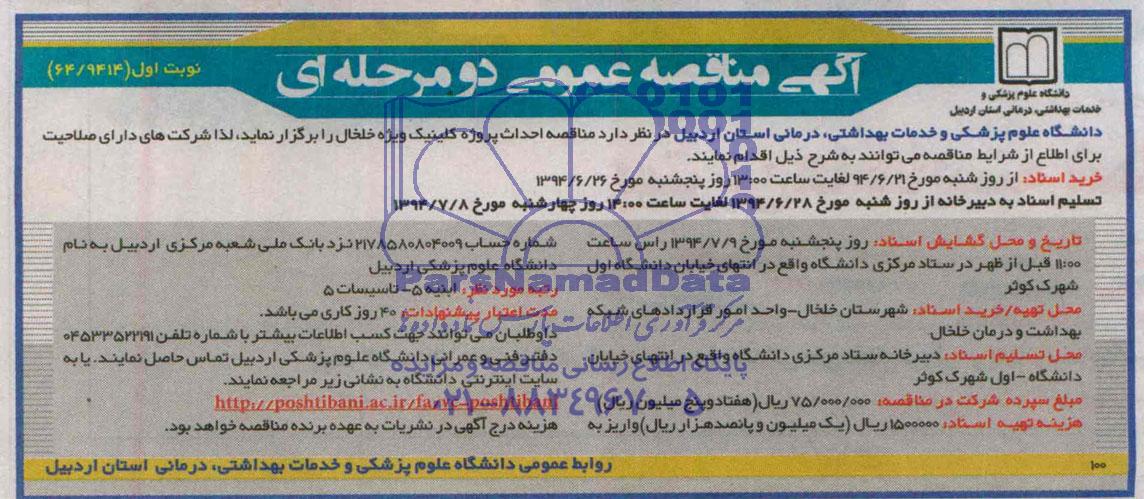 آگهی مناقصه عمومی دو مرحله ای
نوبت اول(۶۴/۹۴۱۴)
دانشگاه علوم پزشکی و
خدمات بهداشتی، درمانی استان اردبیل
دانشگاه علوم پزشکی و خدمات بهداشتی، درمانی استان اردبیل در نظر دارد مناقصه احداث پروژه کلینیک ویژه خلخال را برگزار نماید، لذا شرکت های دارای صلاحیت
برای اطلاع از شرایط مناقصه می توانند به شرح ذیل اقدام نمایند.
خرید اسناد: از روز شنبه مورخ ۹۴/۶/۲۱ لغایت ساعت ۱۳:۰۰ روز پنجشنبه مورخ ۱۳۹۴/۶/۲۶
تسلیم اسناد به دبیرخانه از روز شنبه مورخ ۱۳۹۴/۶/۲۸ لغایت ساعت ۱۴:۰۰ روز چهارشنبه مورخ ۱۳۹۴/۷/۸
تاریخ و محل گشایش اسناد: روز پنجشنبه مورخ ۱۳۹۴/۷/۹ راس ساعت
۱۱:۰۰ قبل از ظهر در ستاد مرکزی دانشگاه واقع در انتهای خیابان دانشگاه اول
شهرک کوثر
محل تهیه/خرید اسناد: شهرستان خلخال-واحد امور قراردادهای شبکه
بهداشت و درمان خلخال
محل تسلیم اسناد: دبیرخانه ستاد مرکزی دانشگاه واقع در انتهای خیابان
دانشگاه -اول شهرک کوثر
مبلغ سپرده شرکت در مناقصه: ۷۵/۰۰۰/۰۰۰ ریال(هفتادوپنج میلیون ریال)
هزینه تهیه اسناد: ۱۵۰۰۰۰۰ ریال (یک میلیون و پانصدهزار ریال)واریز به
شماره حساب ۲۱۷۸۵۸۰۸۰۴۰۰۹ نزد بانک ملی شعبه مرکزی اردبیل به نام
دانشگاه علوم پزشکی اردبیل
رتبه مورد نظر: ابنیه ۵- تاسیسات ۵
مدت اعتبار پیشنهادات: ۴۰ روز کاری می باشد.
داوطلبان می توانند جهت کسب اطلاعات بیشتر با شماره تلفن ۰۴۵۳۳۵۲۲۱۹۱
دفتر فنی و عمرانی دانشگاه علوم پزشکی اردبیل تماس حاصل نمایند. یا به
سایت اینترنتی دانشگاه به نشانی زیر مراجعه نمایند.
http://poshtibani.ac.ir/fa/vc-poshtibani
هزینه درج آگهی در نشریات به عهده برنده مناقصه خواهد بود.
۱۰۰
روابط عمومی دانشگاه علوم پزشکی و خدمات بهداشتی، درمانی استان اردبیل
ParsNamadData
مرکز فرآوری اطلاعات پارس نماد داده ها
پایگاه اطلاع رسانی مناقصه و مزایده
۰۲۱-۸۸۳۴۹۶۷۰-۵